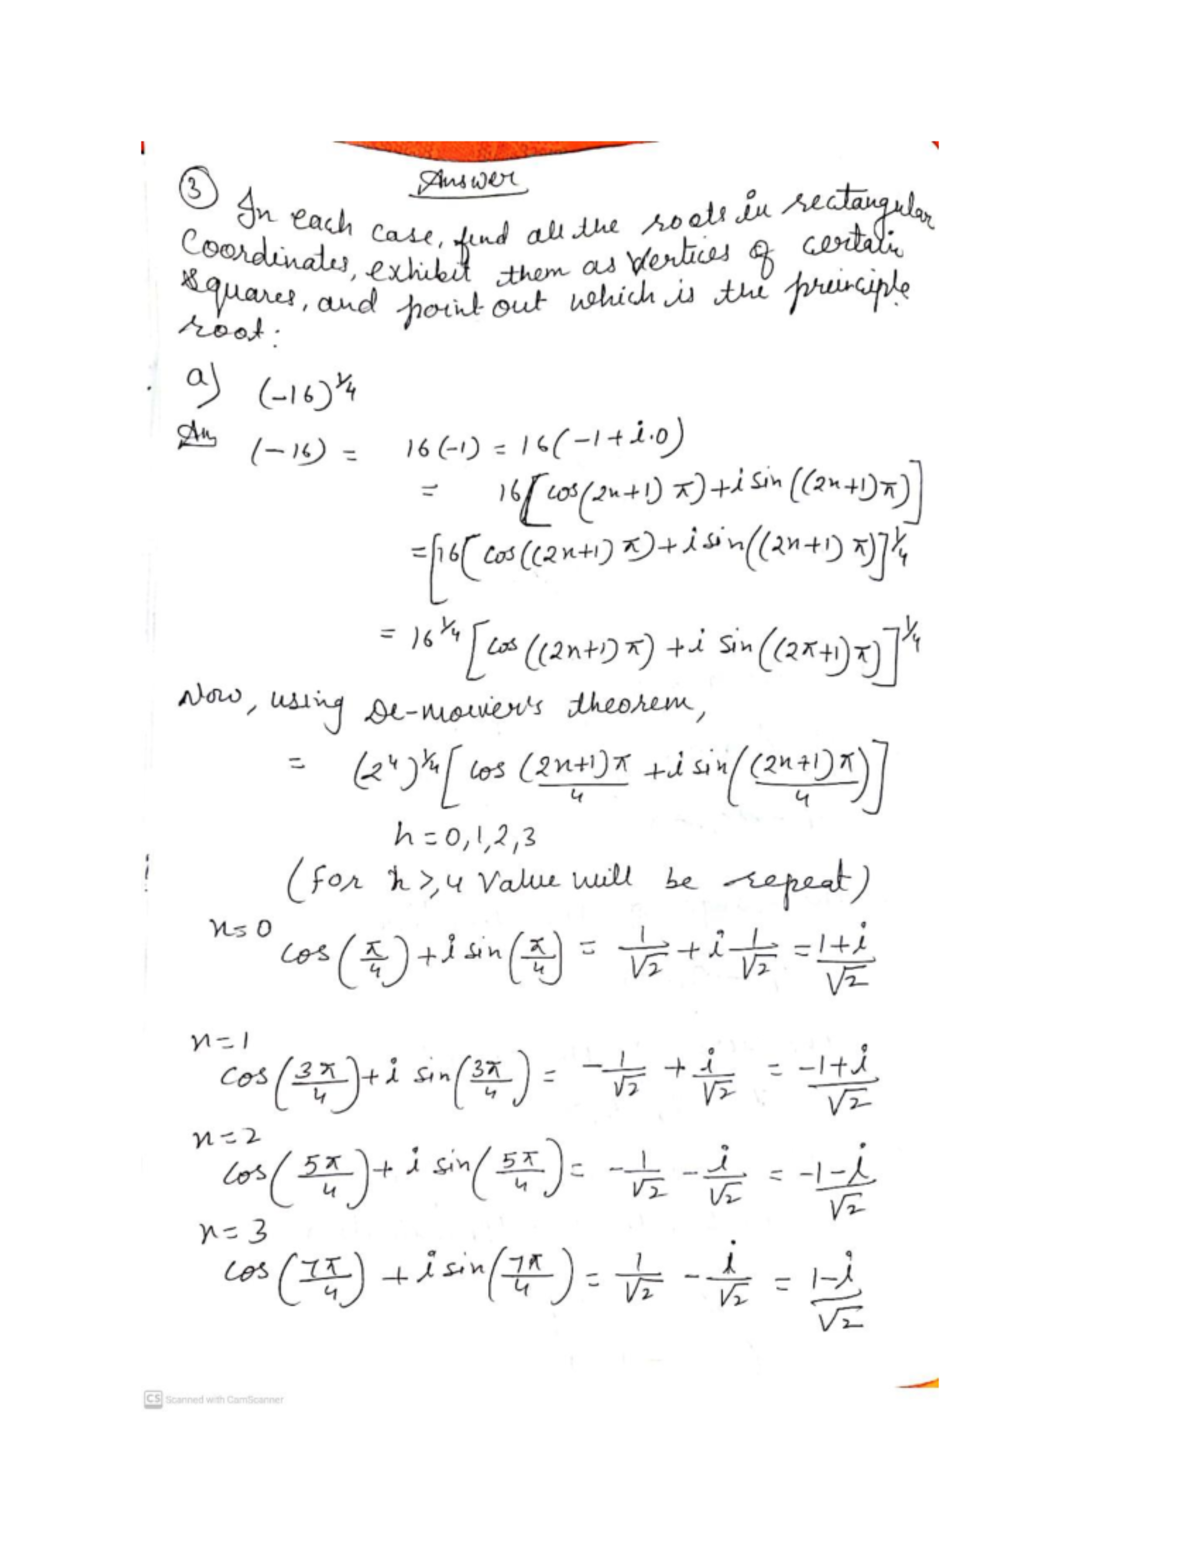 Answer
③ In each case, find all the roots in rectangular
Coordinates, exhibit them as vertices of certain
squares, and point out which is the preinciple
root:
a) (-16)^1/4
An (-16) = 16(-1) = 16(-1+i.0)
= 16[cos(2n+1)π)+i sin((2n+1)π)]
=[16[cos((2n+1)π)+i sin((2n+1)π)]^1/4
= 16^1/4 [cos((2n+1)π)+i sin((2π+1)π)]^1/4
Now, using De-moivier's theorem,
= (2^4)^1/4 [cos (2n+1)π/4 +i sin((2n+1)π/4)]
n=0,1,2,3
(for n≥4 value will be repeat)
n=0
cos(π/4)+i sin(π/4) = 1/√2 + i 1/√2 = 1+i/√2
n=1
cos(3π/4)+i sin(3π/4) = -1/√2 + i/√2 = -1+i/√2
n=2
cos(5π/4)+i sin(5π/4)= -1/√2 - i/√2 = -1-i/√2
n=3
cos(7π/4)+i sin(7π/4)= 1/√2 - i/√2 = 1-i/√2
CS Scanned with CamScanner